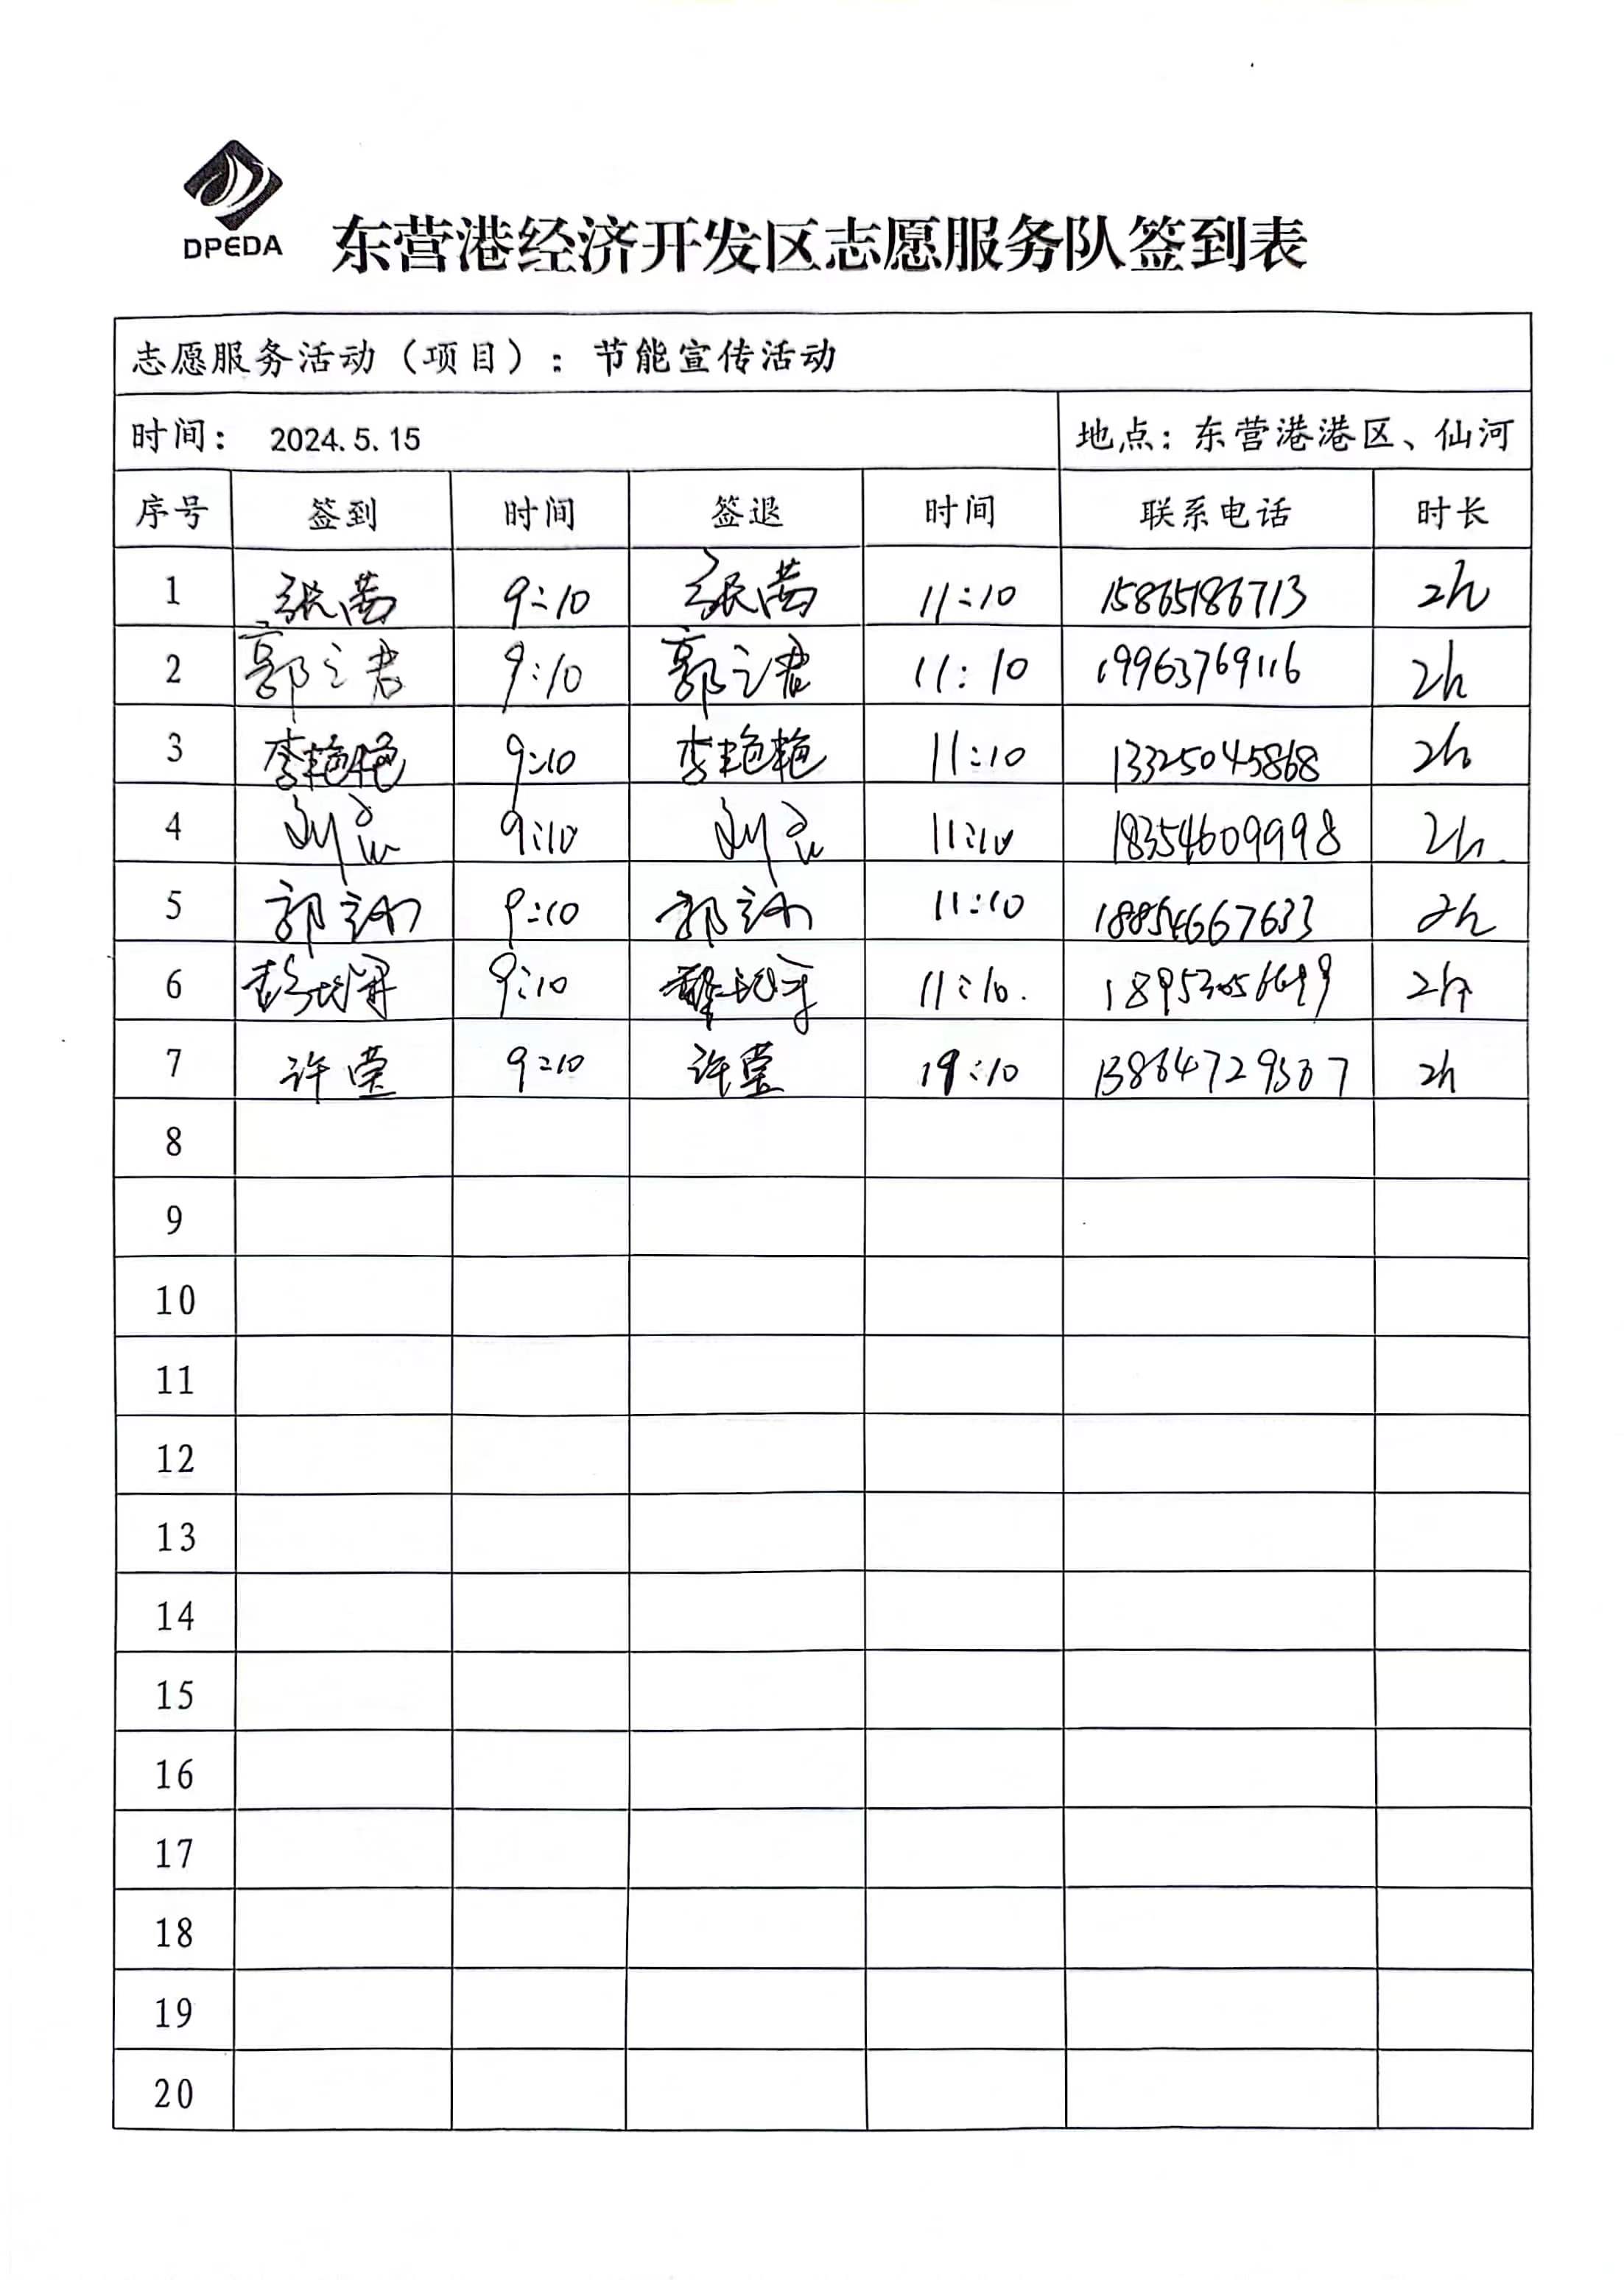 DPEDA
东营港经济开发区志愿服务队签到表
志愿服务活动（项目）：节能宣传活动
时间： 2024.5.15 地点：东营港港区、仙河
序号 签到 时间 签退 时间 联系电话 时长
1 张茜 9:10 张茜 11:10 15865186713 2h
2 郭之君 9:10 郭之君 11:10 19963769116 2h
3 李艳艳 9:10 李艳艳 11:10 13325045868 2h
4 9:10 11:10 18354609998 2h
5 郭 9:10 郭 11:10 18854667633 2h
6 9:10 11:10. 2h
7 许莹 9:10 许莹 :10 2h
8
9
10
11
12
13
14
15
16
17
18
19
20